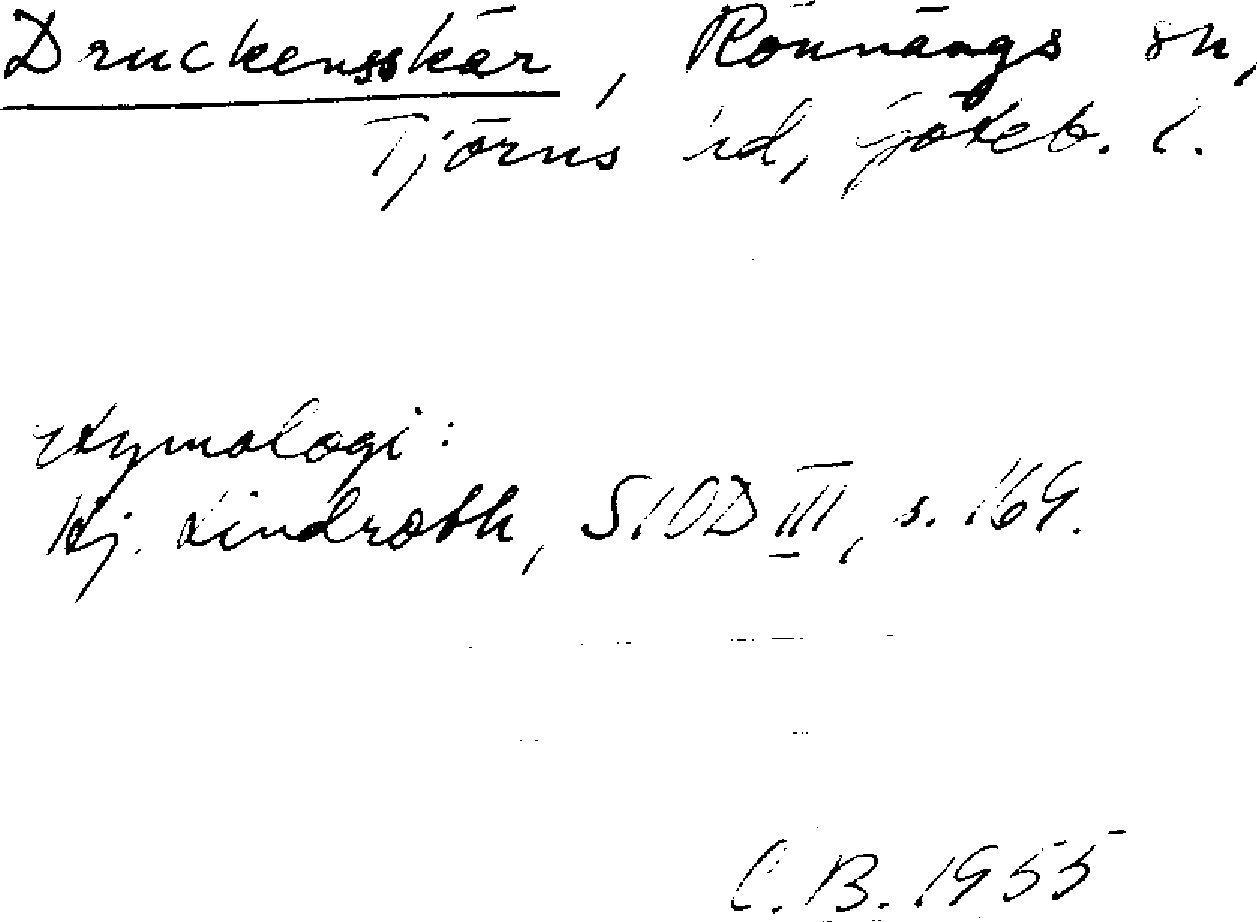 Druckensskär, Rönnängs sn,
Tjörns hd, Göteb. l.
Etymologi:
Hj. Lindroth, SIOD III, s. 169.
C. B. 1955